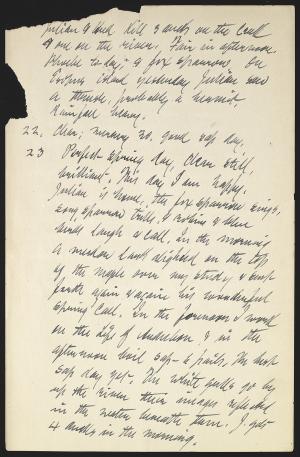 Julian & Hud kill 3 ducks on the creek
& one on the river. Fair in afternoon
Phoebe to-day; & fox sparrows. On
Esopus island yesterday Julian saw
a thrush, probably a hermit.
Rainfall heavy.
22. Clear; mercury 30. good sap day.
23 Perfect spring day, clear, still,
brilliant. This day I am happy.
Julian is home, the fox sparrow sings,
song sparrow trills, & robins & blue
birds laugh & call. In the morning
a meadow lark alighted on the top
of the maple over my study & sent
forth again & again his wonderful
spring call. In the forenoon I work
on the life of Audubon, & in the
afternoon boil sap - 2 pails. The best
sap day yet. The white gulls go by
up the river their images reflected
in the water beneath them. J. gets
4 ducks in the morning.